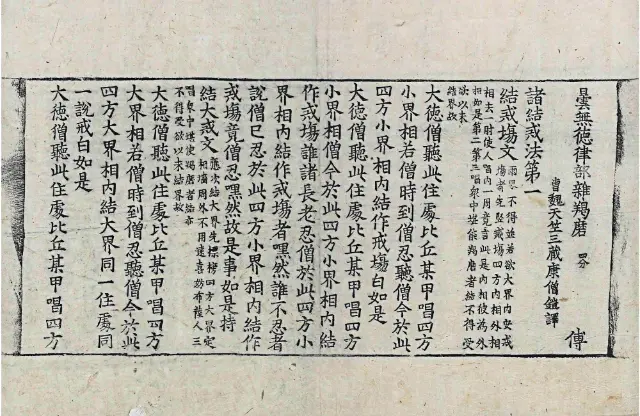 曇無徳律部雜羯磨 傅
曹魏天竺三藏康僧鎧譯
諸結戒法第一
結戒場文 兩界不得並若欲大界内安戒
場者先竪戒場四方内相外相
相去一肘使人唱内一周竟言此是内相彼為外
相如是第二第三唱衆中堪能羯磨者結不得受
欲以未結界故
大徳僧聽此住處比丘某甲唱四方
小界相若僧時到僧忍聽僧今於此
四方小界相内結作戒場白如是
大徳僧聽此住處比丘某甲唱四方
小界相僧今於此四方小界相内結
作戒塲誰諸長老忍僧於此四方小
界相内結作戒塲者嘿然誰不忍者
說僧已忍於此四方小界相内結作
戒塲竟僧忍嘿然故是事如是持
結大戒文 應次結大界先標榜四方大界定
相周外不用遶人三
唱衆中堪使羯磨者結亦
不得受欲以未結界故
大徳僧聽此住處比丘某甲唱四方
大界相若僧時到僧忍聽僧今於此
四方大界相内結大界同一住處同
一說戒白如是
大徳僧聽此住處比丘某甲唱四方